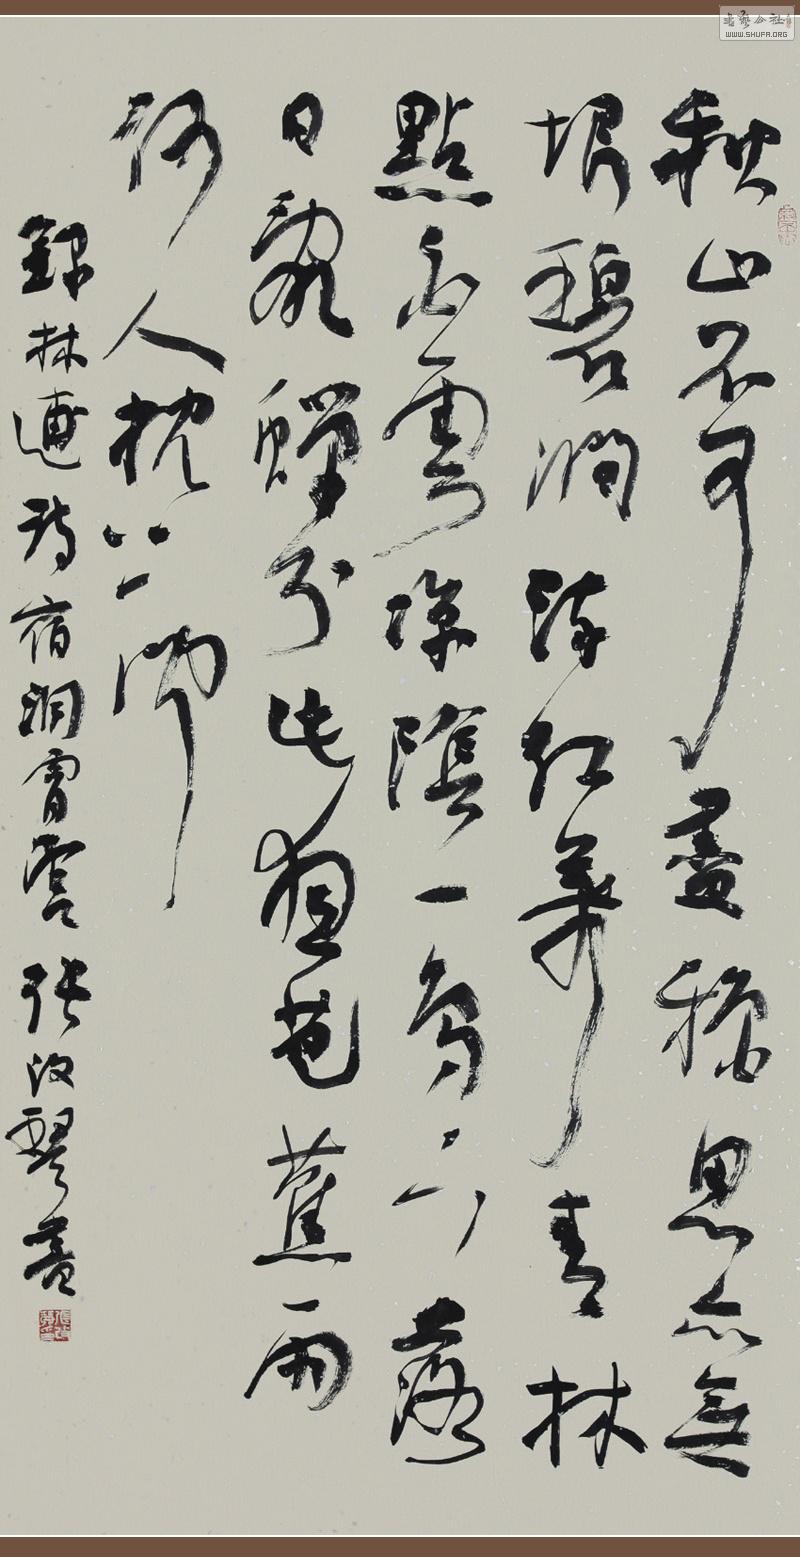 書藝公社
WWW.SHUFA.ORG
秋山不可盡秋思亦無
垠碧澗流紅葉青林
點白雲涼陰一鳥下落
日亂蟬分此夜芭蕉雨
何人枕上聞
錄林逋詩宿洞霄宮 張改琴書